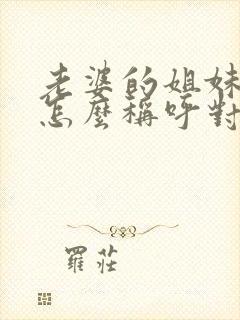 老婆的姐妹
怎麼稱呼對
羅莊